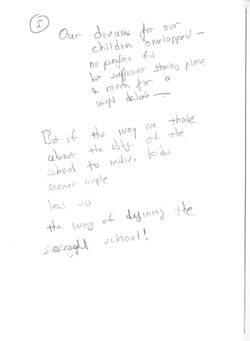 5
Our dreams for our
children overlapped —
no perfect fit
but sufficient starting place
& room for a
debate —
But if the way we
about the oblig. of the
school to indiv. kids
simple
less so
the way of defining the
successful school!